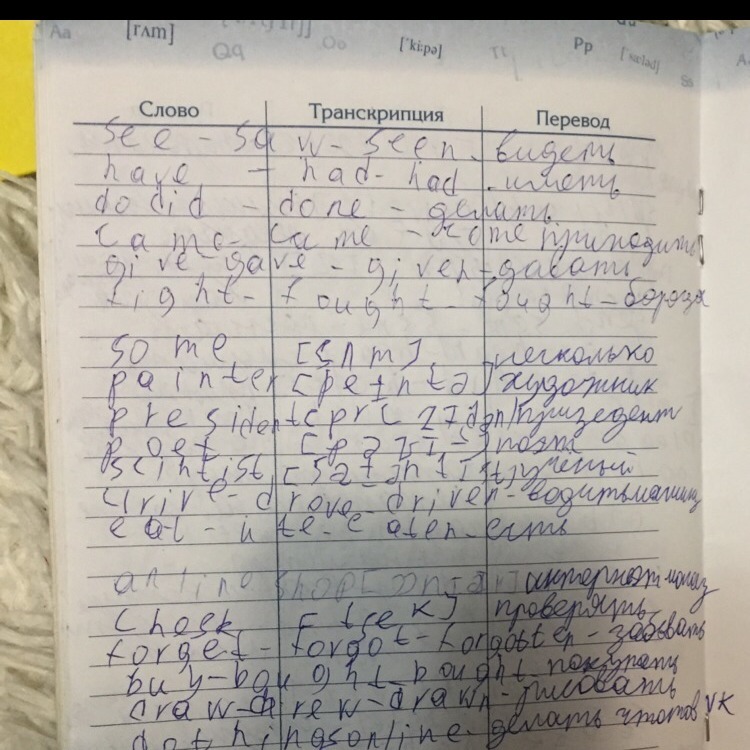 Aa [rʌm] Qq Oo ['ki:pə] Tt Pp Ss
Слово Транскрипция Перевод
see - saw - seen - видеть
have - had - had - иметь
do did - done - делать
came - came - come приходить
give gave - given - давать
fight - fought - fought - бороца
some [sʌm] несколько
painter [peɪntə] художник
president призедент
poet поэт
scintist учёный
drive - drove - driven - водить машину
eat - ate - eaten - есть
online shop интернэт магаз
Chosk [tʃek] проверять
forget - forgot - forgotten - забывать
buy - bought - bought покупать
draw - drew - drawn - рисовать
do things online - делать чтото в VK